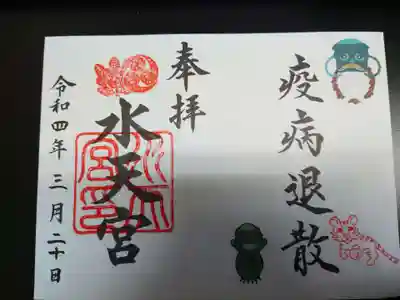 疫病退散
奉拝
水天宮
令和四年三月二十日